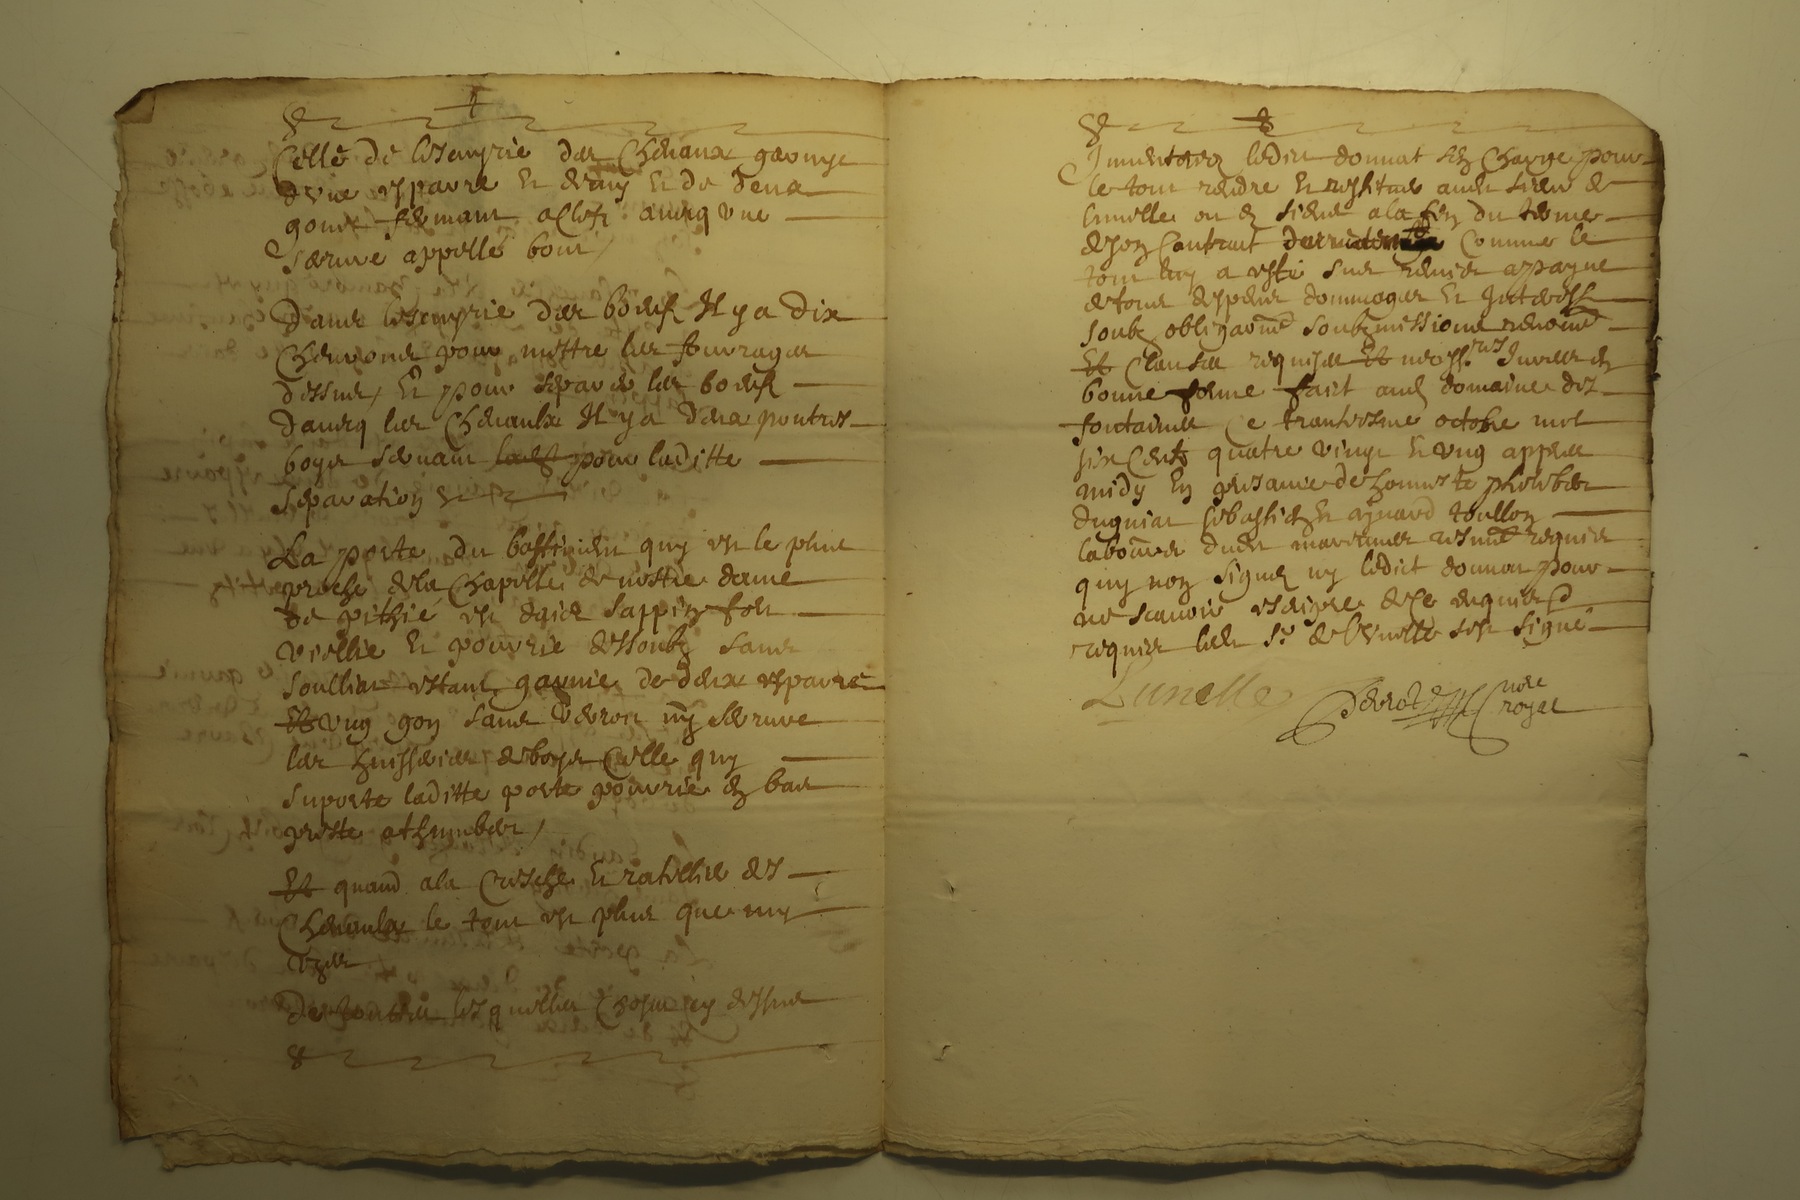 Celle de lescuyrie des Chevaux garnye
d'une espaire et demy et de deux
gons fermant a clef avecq une
serrure appellé bout
Dans lescuyrie des boeufs Il y a dix
Chevrons pour mettre les fourrages
dessus, Et pour separer les boeufs
davecq les Chevaulx Il y a deux poutres
boys servant pour laditte
separation
La porte du bastiment quy est le plus
proche de la Chapelle de nostre dame
de pithié est d'aix sappin fort
viellie et pourrie dessoubz sans
soulliar estant garnie de deux espaires
Et ung gon sans verroit ny serrure
les huisseries de boys Celle quy
suporte laditte porte pourrie en bas
preste a thumber
Et quand a la Cresche et ratellier des
Chevaulx le tout est plus que my
uzer
De touttes lesquelles Choses cy dessus
Inventorez ledict donnat sen Charge pour
le tout rendre et restitue audit sieur de
lunelle ou es siens a la fin du terme
de son Contrait Comme le
tout luy a esté sur renier a payne
de tous despens dommages et Interestz
soubz obligaon soubzmissions renon
Et Clauses requises Et necess.res Jurees en
bonne forme faict aud domaine des
fontaines Ce trantiesme octobre mil
six Centz quatre vingt et ung appres
midy En presance de honneste philibert
duguiat sebastien et aynard toullon
quy non signez ny ledict donnat pour
ne scavoir escripre de ce enquis et
requis ledit Sr de lunelle sest signé
Lunelle
nore
royal